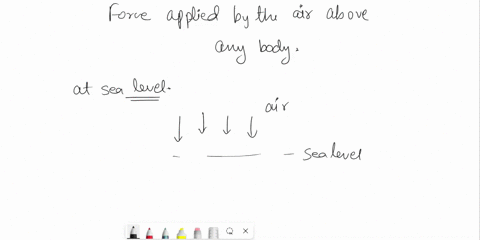 Force applied by the air above
any body.
at sea level.
air
sea level